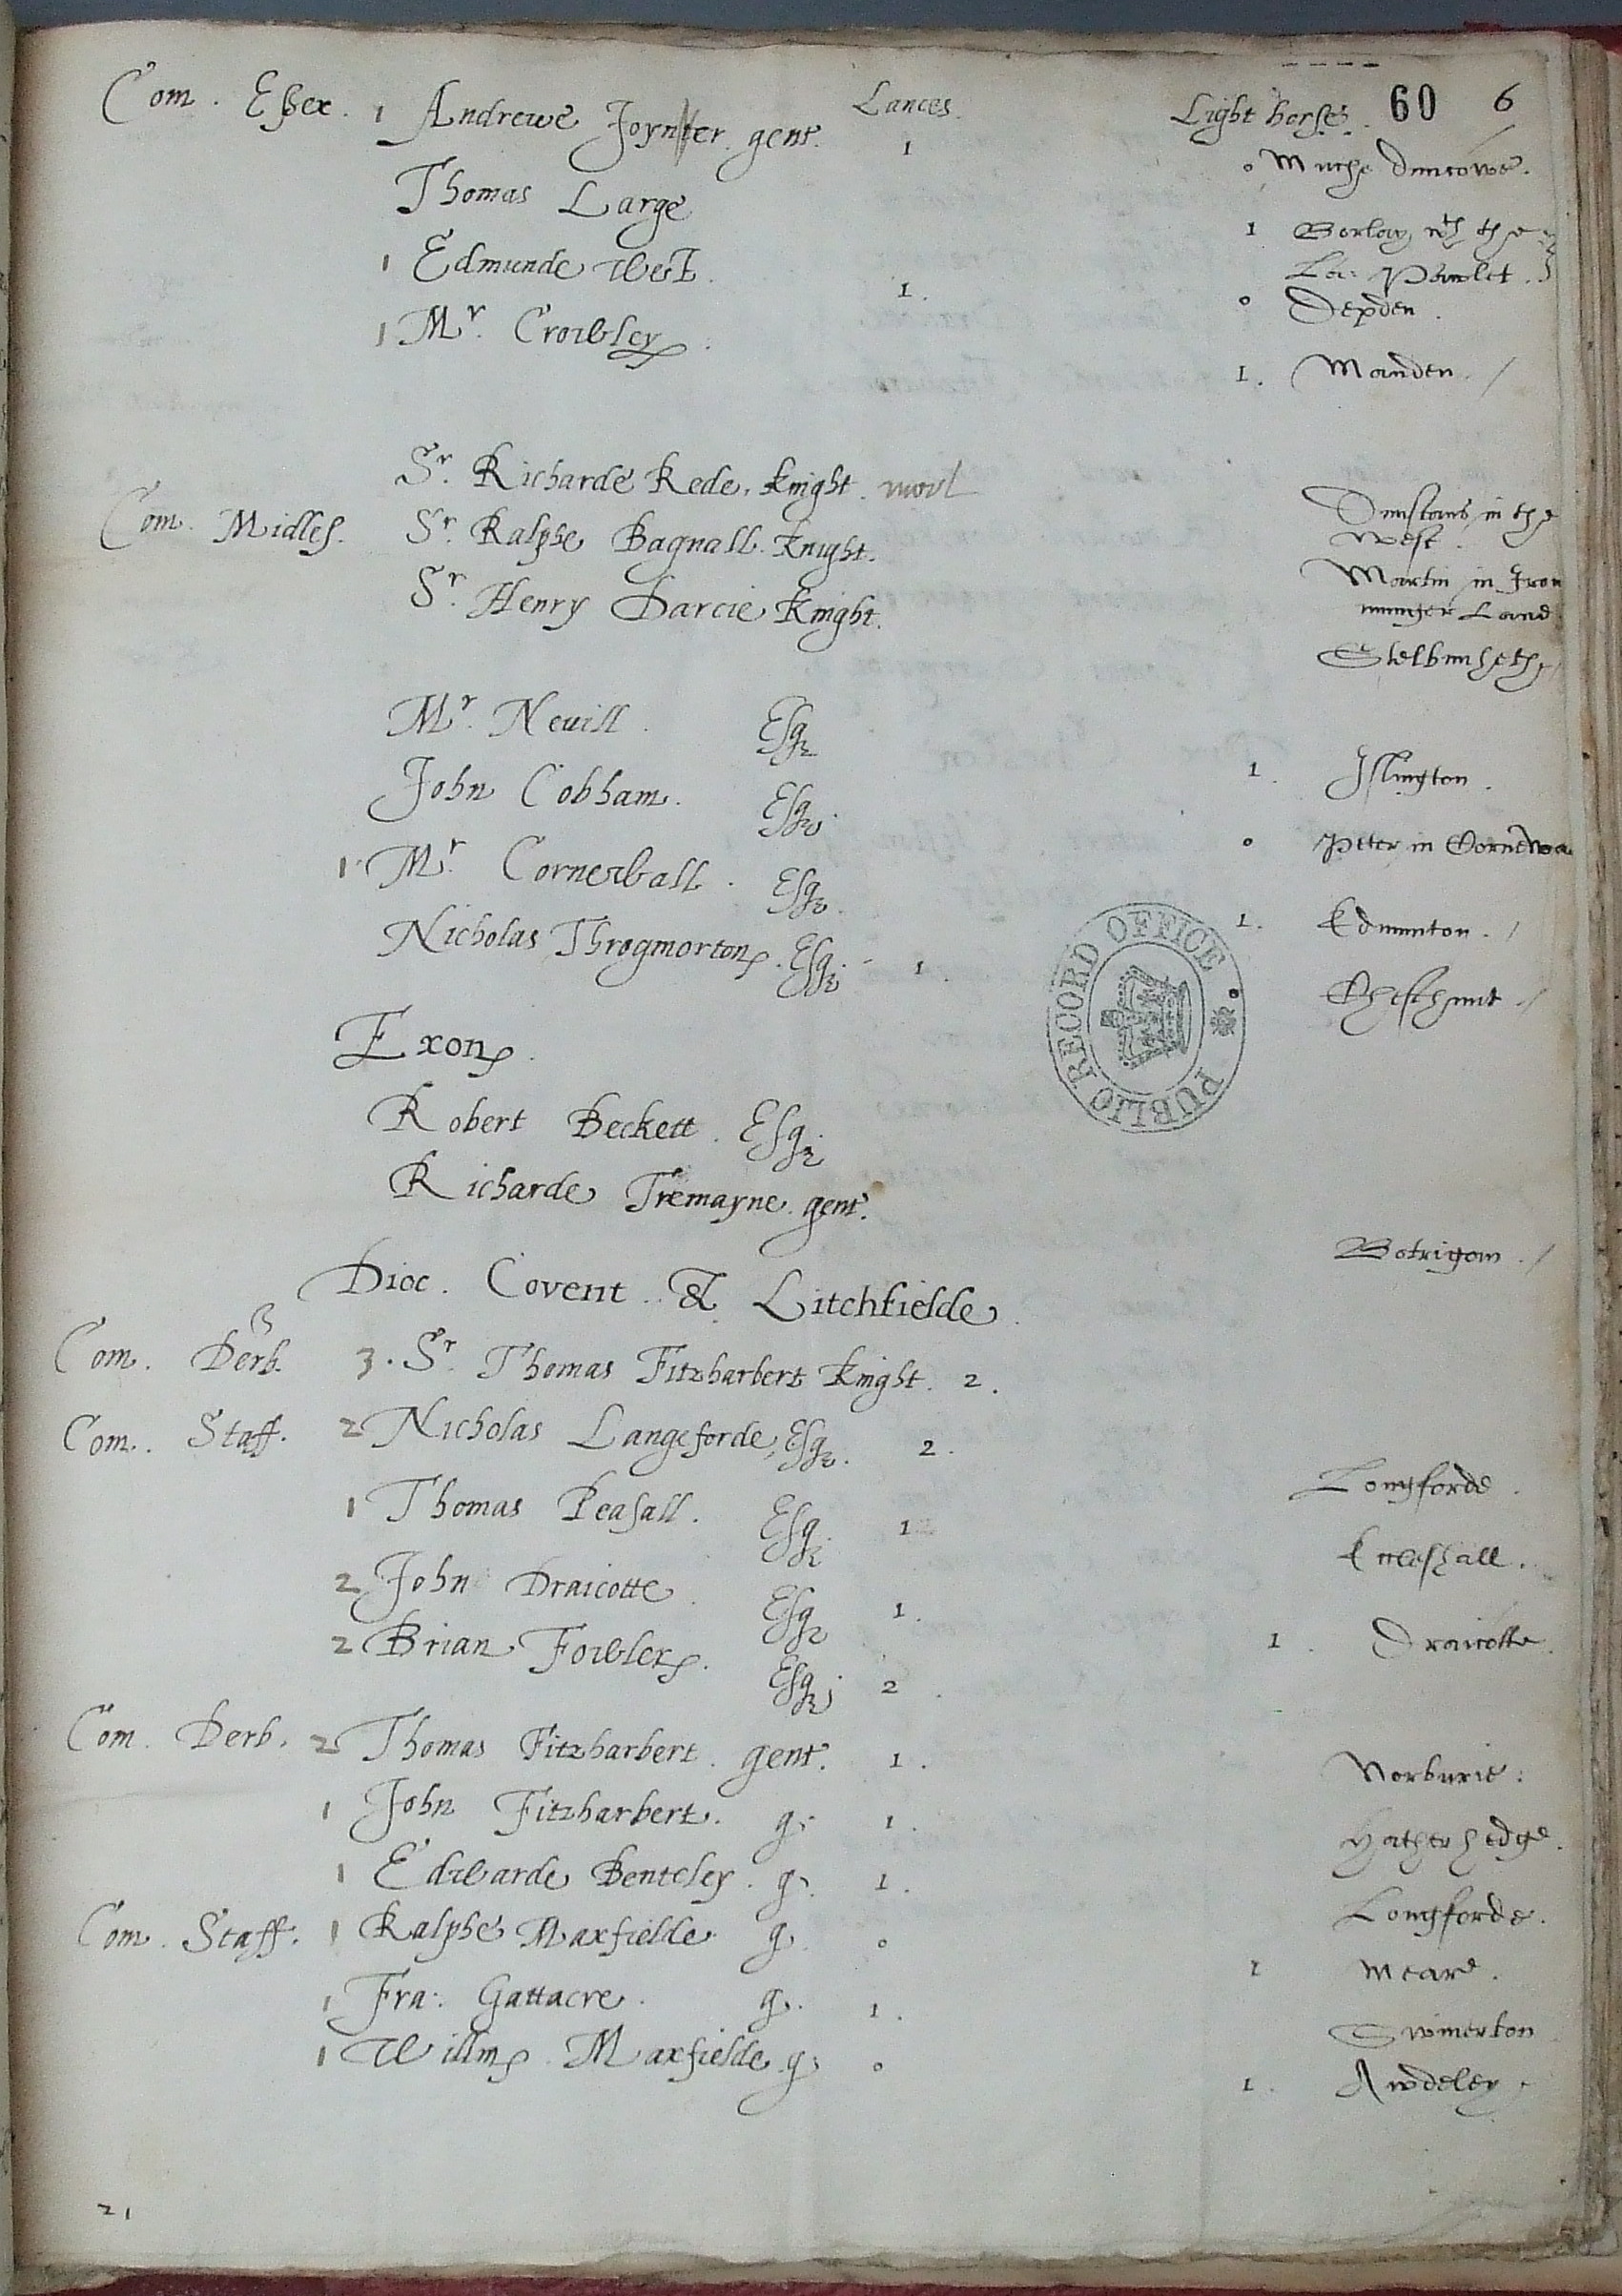 60 6
Com. Essex. Lances. Light horse.
1 Andrewe Joynter gent. 1 0 Muche Dunmowe.
Thomas Large 1 Borley wth the
La: Pawlet.
1 Edmunde West. 1. 0 Depden.
1 Mr. Crowley. 1. Manden
Sr. Richarde Rede, knight. Dunstans in the
west.
Com. Midles. Sr. Ralphe Bagnall. knight. Martin in Iron
munger Lane
Sr. Henry Darcie knight.
Mr. Nevill. Esqr 1. Islington.
John Cobham. Esqr. 0 Peter in Corne
1 Mr Cornewall. Esqr. 1. Edmunton.
Nicholas Throgmorton. Esqr. 1. Cheschunt
PUBLIC RECORD OFFICE
Exon.
Robert Beckett. Esqr
Richarde Tremayne. gent. Botrigam.
Dioc. Covent. & Litchfielde.
Com. Derb. 3. Sr. Thomas Fitzharbert knight. 2.
Com. Staff. 2 Nicholas Langeforde, Esqr. 2. Longforde.
1 Thomas Peasall. Esqr 1
2 John Draicotte. Esqr 1. 1. Draicotte.
2 Brian Fowler. Esqr 2.
Com. Derb. 2 Thomas Fitzharbert. gent. 1. Norburie:
1 John Fitzharbert. g: 1. Hathershedge.
1 Edwarde Benteley. g. 1. Longforde.
Com. Staff. 1 Ralphe Maxfielde g. 0 1 Meare.
1 Fra: Gattacre. g. 1. Swinerton
1 Willm Maxfielde g: 0 1. Awdeley.
21